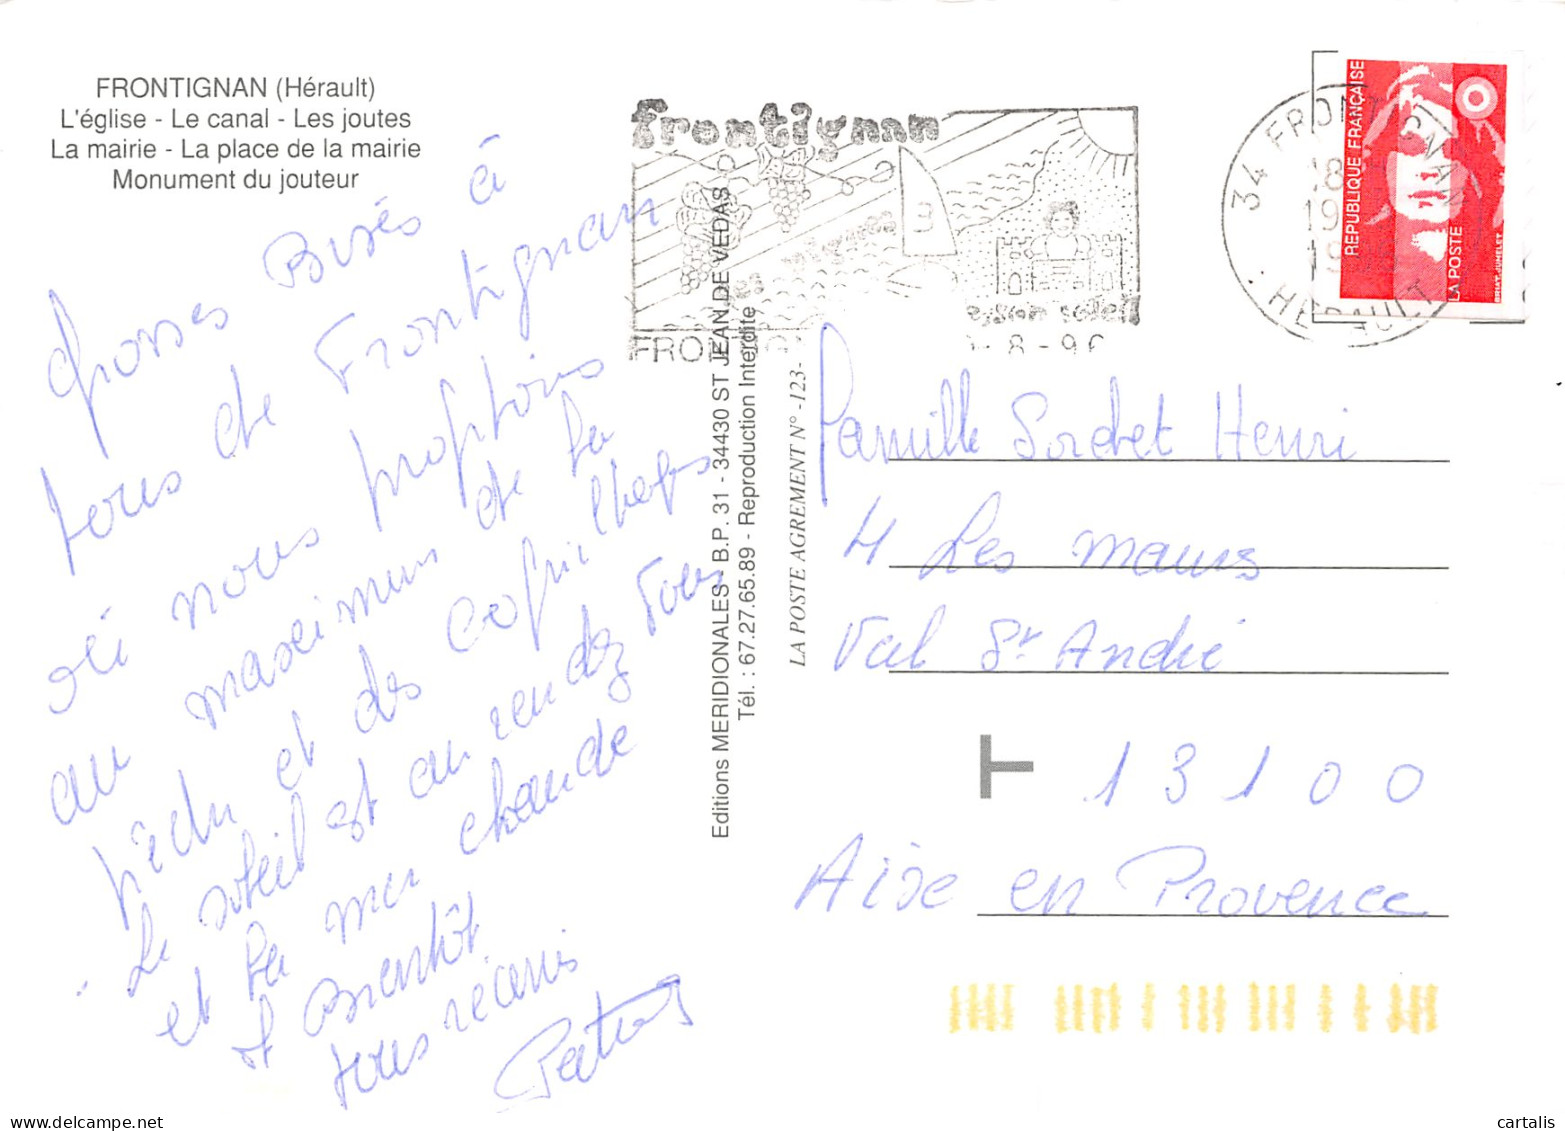 FRONTIGNAN (Hérault)
L'église - Le canal - Les joutes
La mairie - La place de la mairie
Monument du jouteur
Grosses Bisés à
tous de Frontignan
où nous profitons
au maximum de la
et des coquillages
Le soleil est au rendez vous
et la mer chaude
A Bientôt
tous réunis
Editions MERIDIONALES - B.P. 31 - 34430 ST JEAN DE VEDAS
Tél. : 67.27.65.89 - Reproduction Interdite
LA POSTE AGREMENT N° -123-
frontignan
3
FRONTIGN
- 8 - 96
34 FRONTIGNAN
18
19
19
HERAULT
REPUBLIQUE FRANÇAISE
LA POSTE
Famille Sordet Henri
4 Les
Val St André
T 13100
Aixe en Provence
cartalis